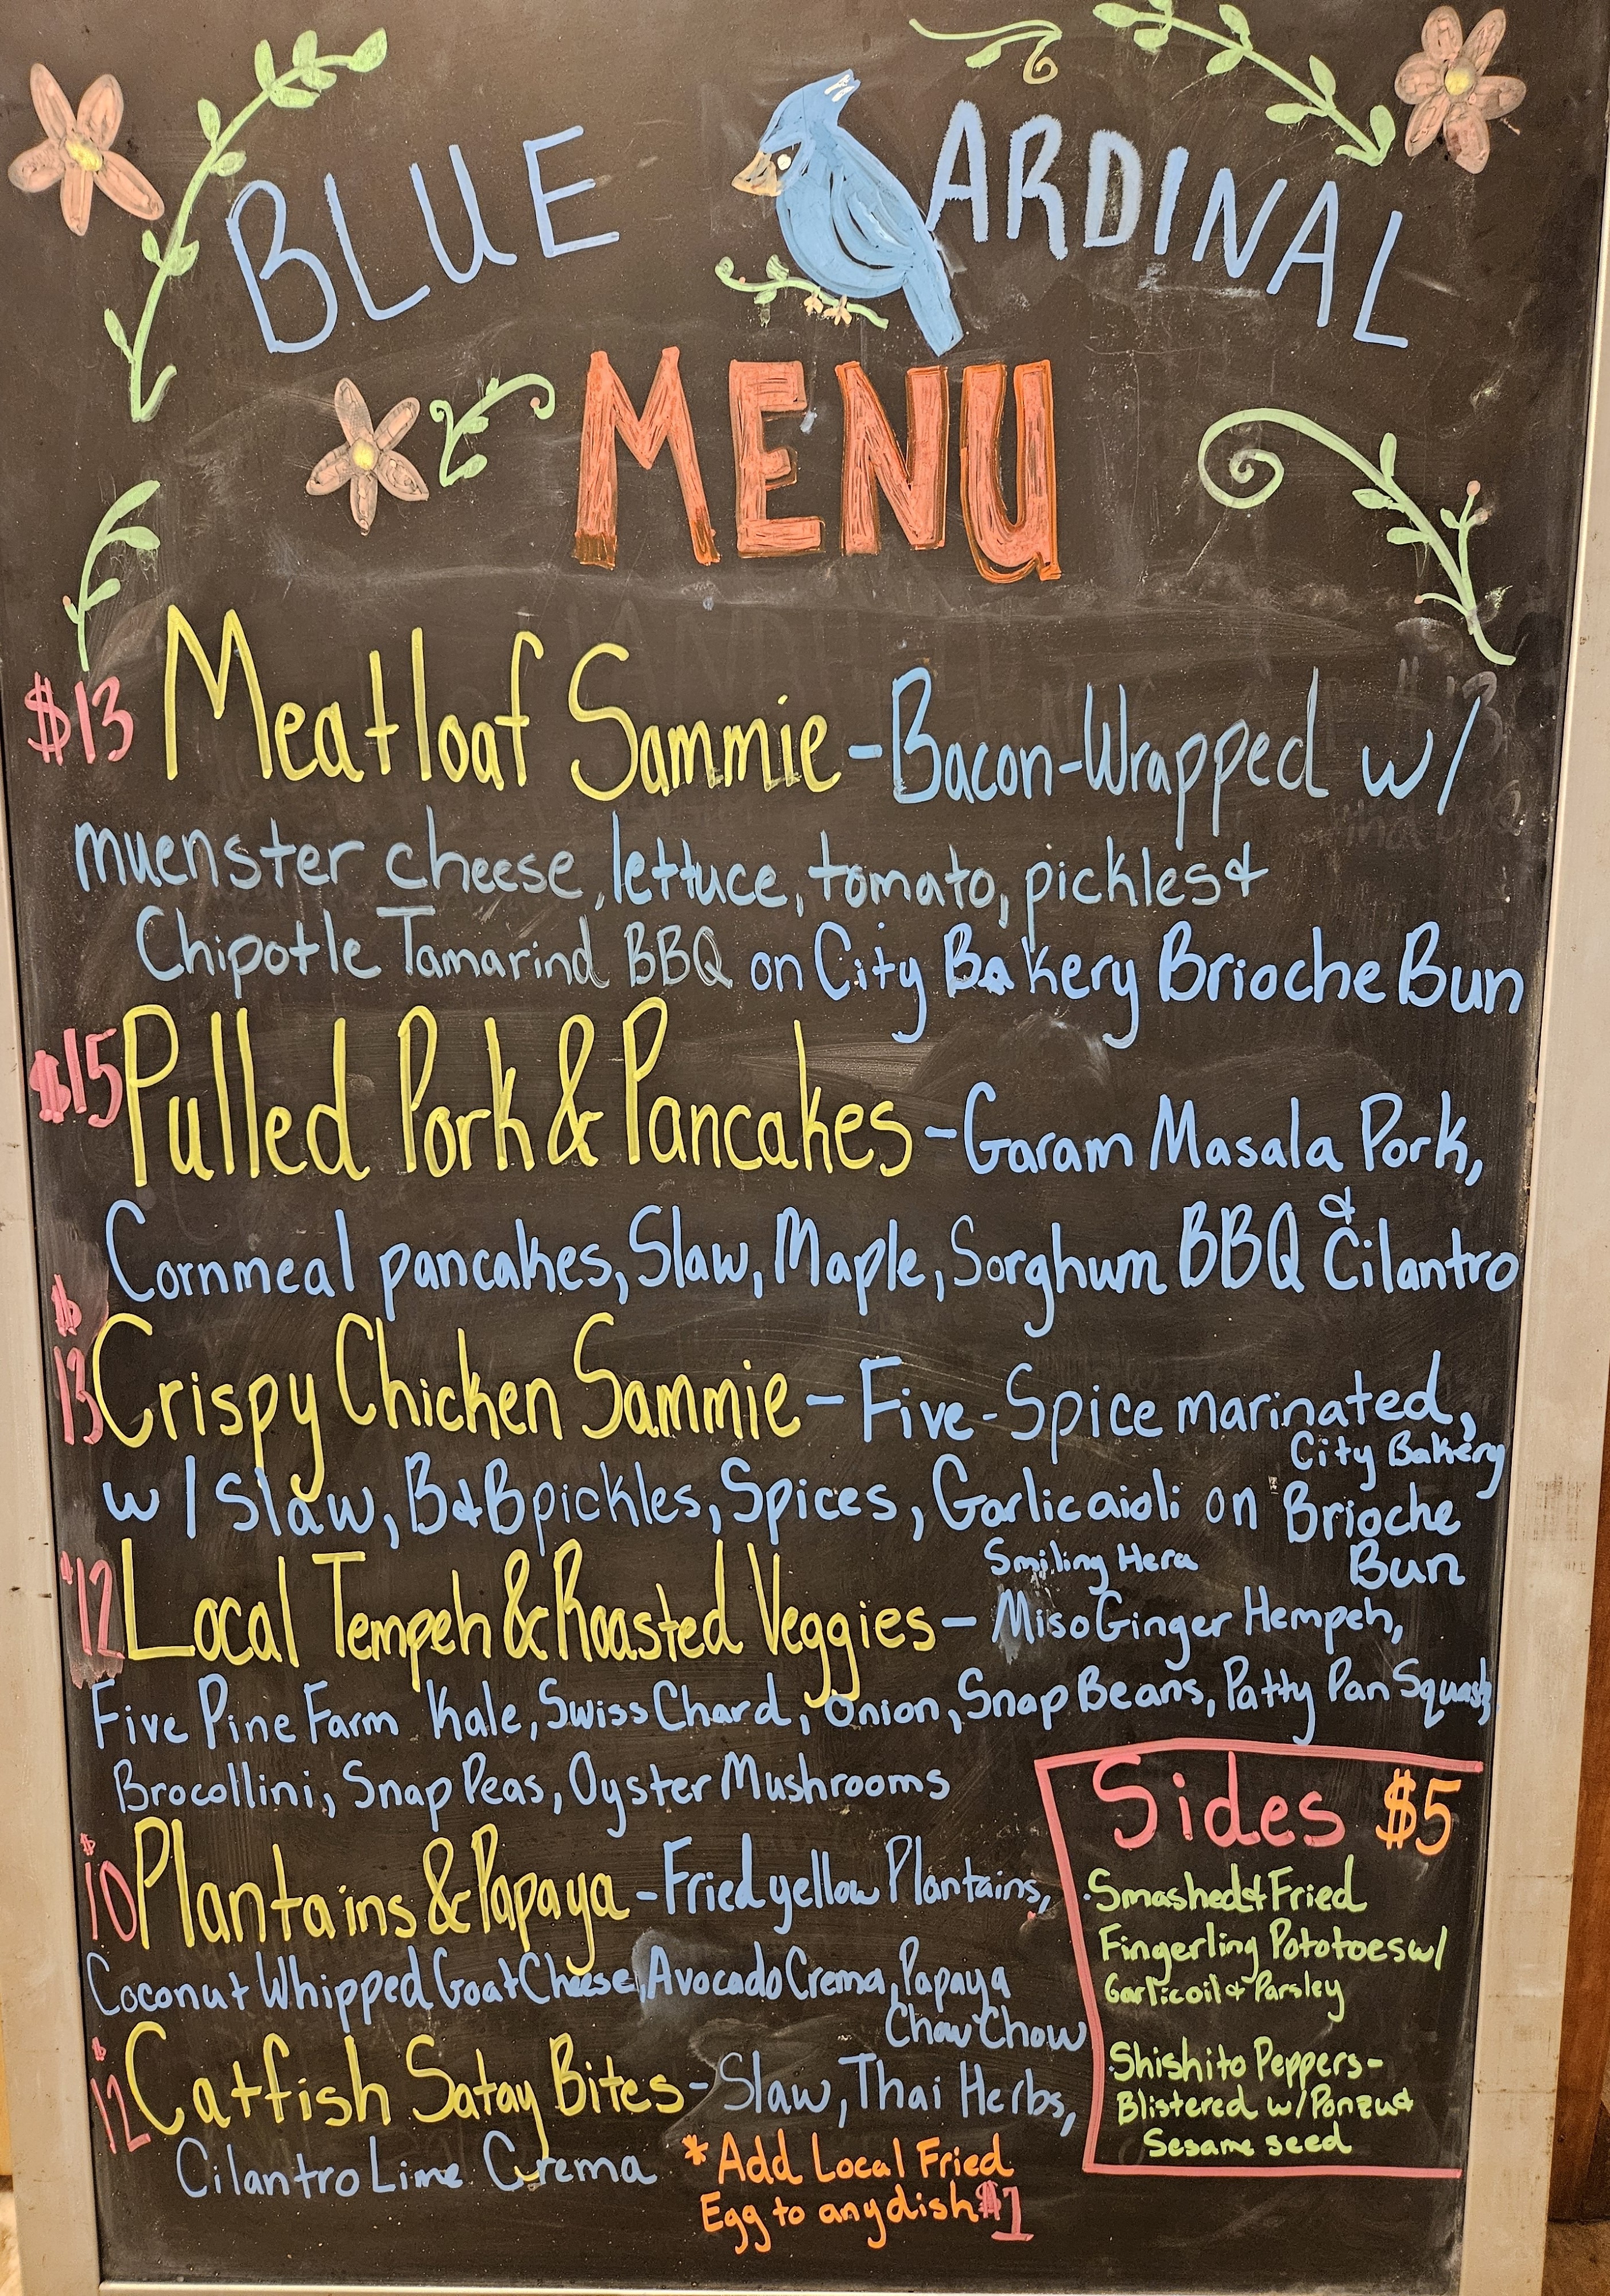 BLUE ARDINAL
MENU
$13 Meatloaf Sammie - Bacon-Wrapped w/
muenster cheese, lettuce, tomato, pickles &
Chipotle Tamarind BBQ on City Bakery Brioche Bun
$15 Pulled Pork & Pancakes - Garam Masala Pork,
Cornmeal pancakes, Slaw, Maple, Sorghum BBQ & Cilantro
$13 Crispy Chicken Sammie - Five-Spice marinated,
w/ Slaw, B&B pickles, Spices, Garlic aioli on City Bakery Brioche
Bun
$12 Local Tempeh & Roasted Veggies - Smiling Hera Miso Ginger Hempeh,
Five Pine Farm Kale, Swiss Chard, Onion, Snap Beans, Patty Pan Squash,
Brocollini, Snap Peas, Oyster Mushrooms
$10 Plantains & Papaya - Fried yellow Plantains,
Coconut Whipped Goat Cheese, Avocado Crema, Papaya
Chow Chow
$12 Catfish Satay Bites - Slaw, Thai Herbs,
Cilantro Lime Crema
*Add Local Fried
Egg to any dish $1
Sides $5
Smashed & Fried
Fingerling Pototoes w/
Garlic oil & Parsley
Shishito Peppers-
Blistered w/ Ponzu &
Sesame seed